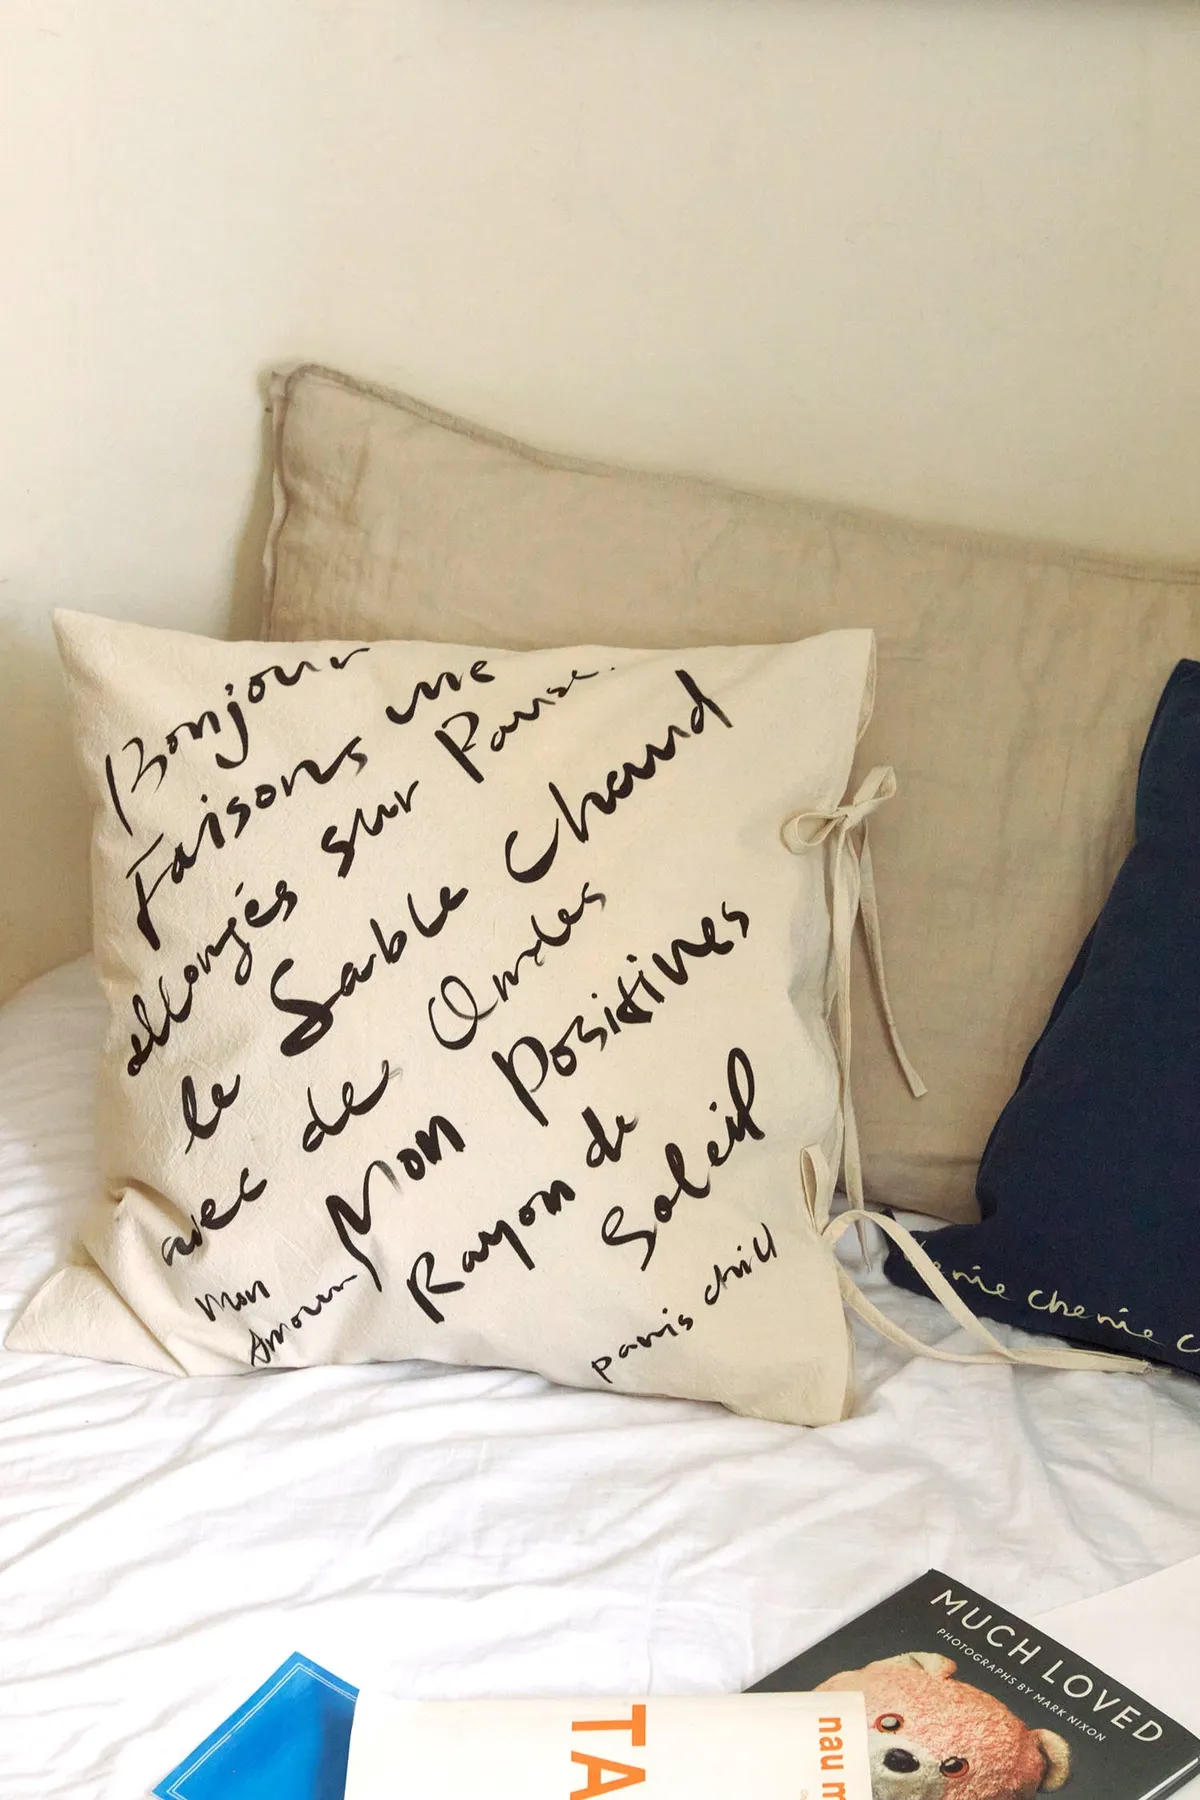 Bonjour
Faisons une
Pause.
allongés sur
le Sable Chaud
avec de Ondes
Positives
Mon
Amour
Mon
Rayon de
Soleil
paris chill
cherie c
MUCH LOVED
PHOTOGRAPHS BY MARK NIXON
TA
nau m